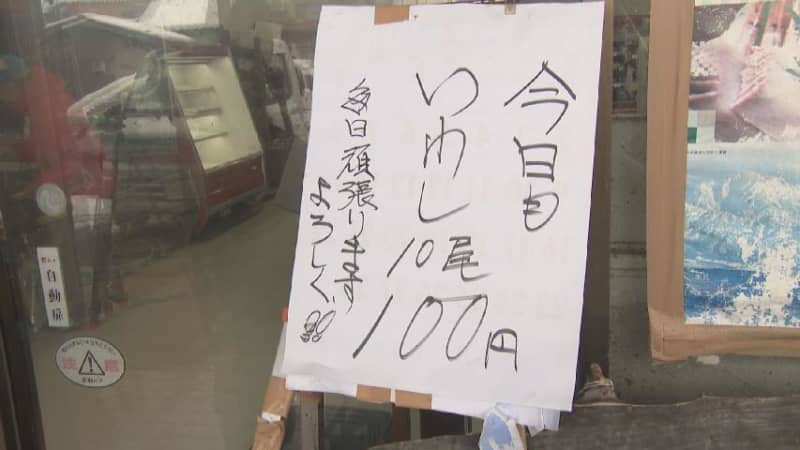 今日も
いわし
10尾
100円
毎日頑張ります
よろしく!!
自動扉
注意